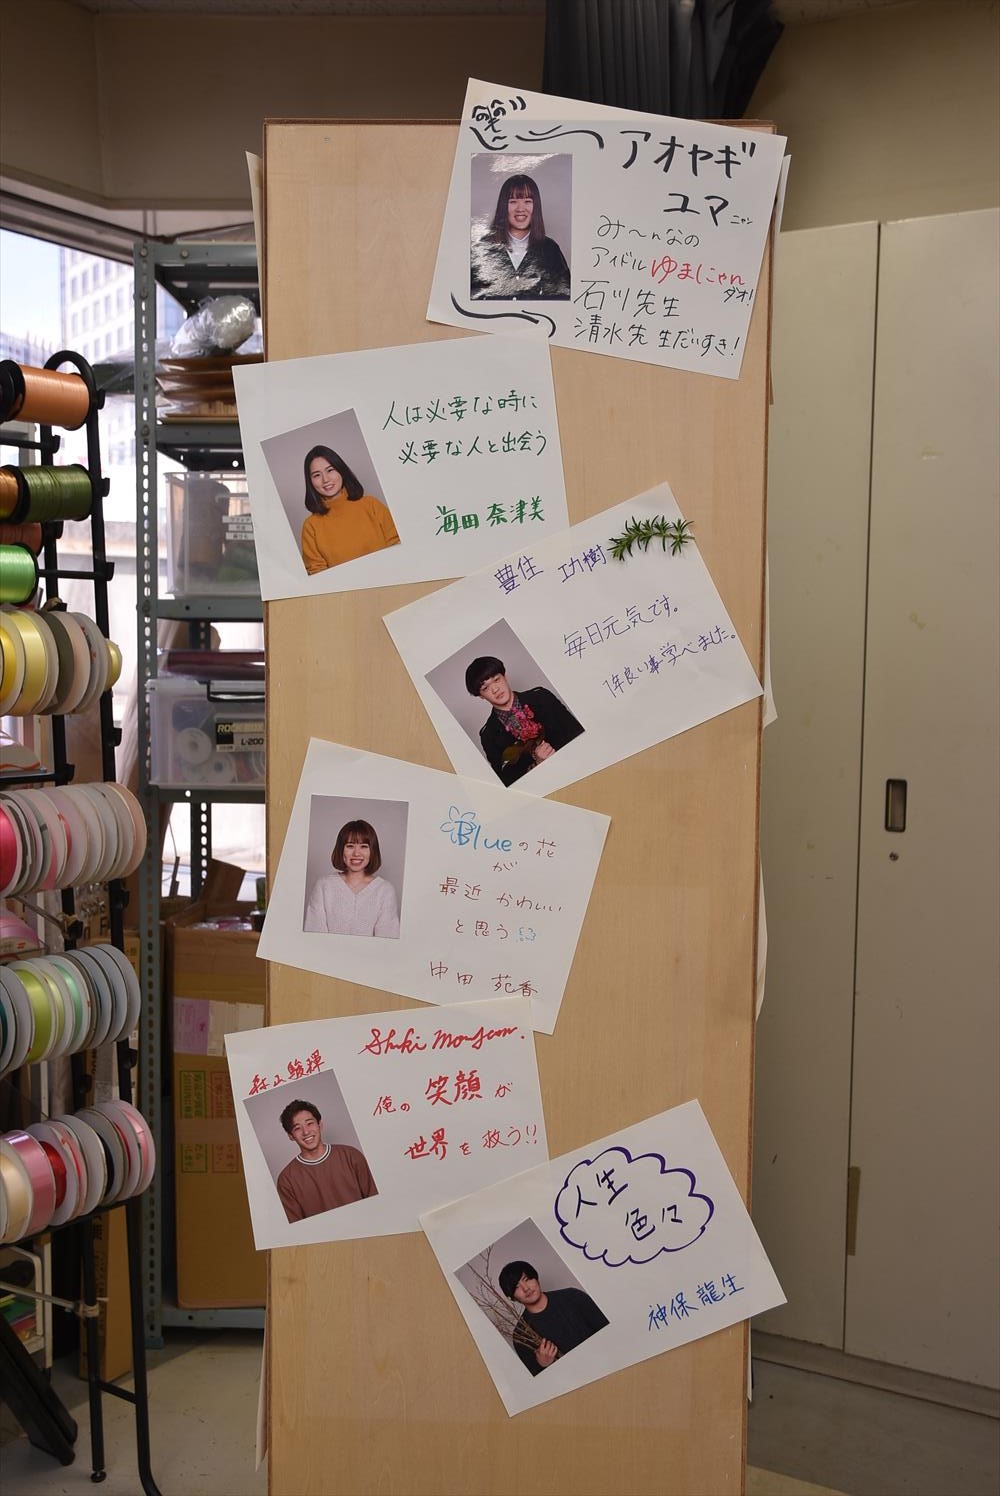 アオヤギ
ユマニャン
み〜んなの
アイドルゆまにゃん
ダオ!
石川先生
清水先生だいすき!
人は必要な時に
必要な人と出会う
海田奈津美
豊住 功樹
毎日元気です。
1年良い事学べました。
Blueの花
が
最近 かわいい
と思う
中田 苑香
森山駿輝
俺の笑顔が
世界を救う!!
人生
色々
神保龍生
L-200